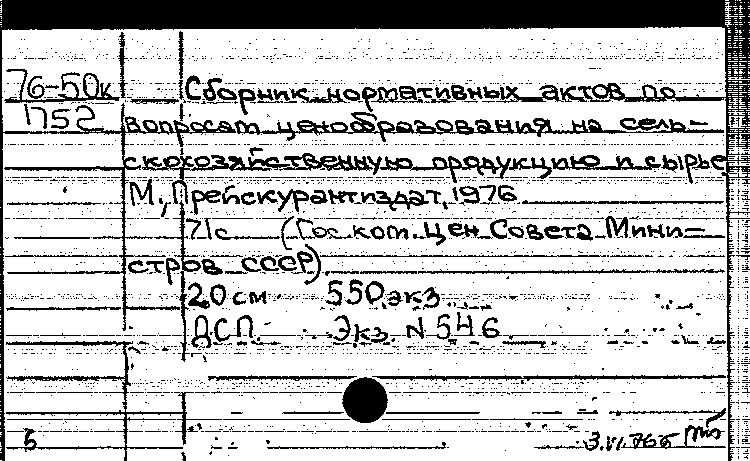 76-50к Сборник нормативных актов по
1752 вопросам ценобразования на сель-
скохозяйственную продукцию и сырье
М., Прейскурантиздат, 1976.
71с (Гос. ком. цен Совета Мини-
стров СССР).
20 см 550 экз.
ДСП. Экз. N 546.
Б 3.VI.76б